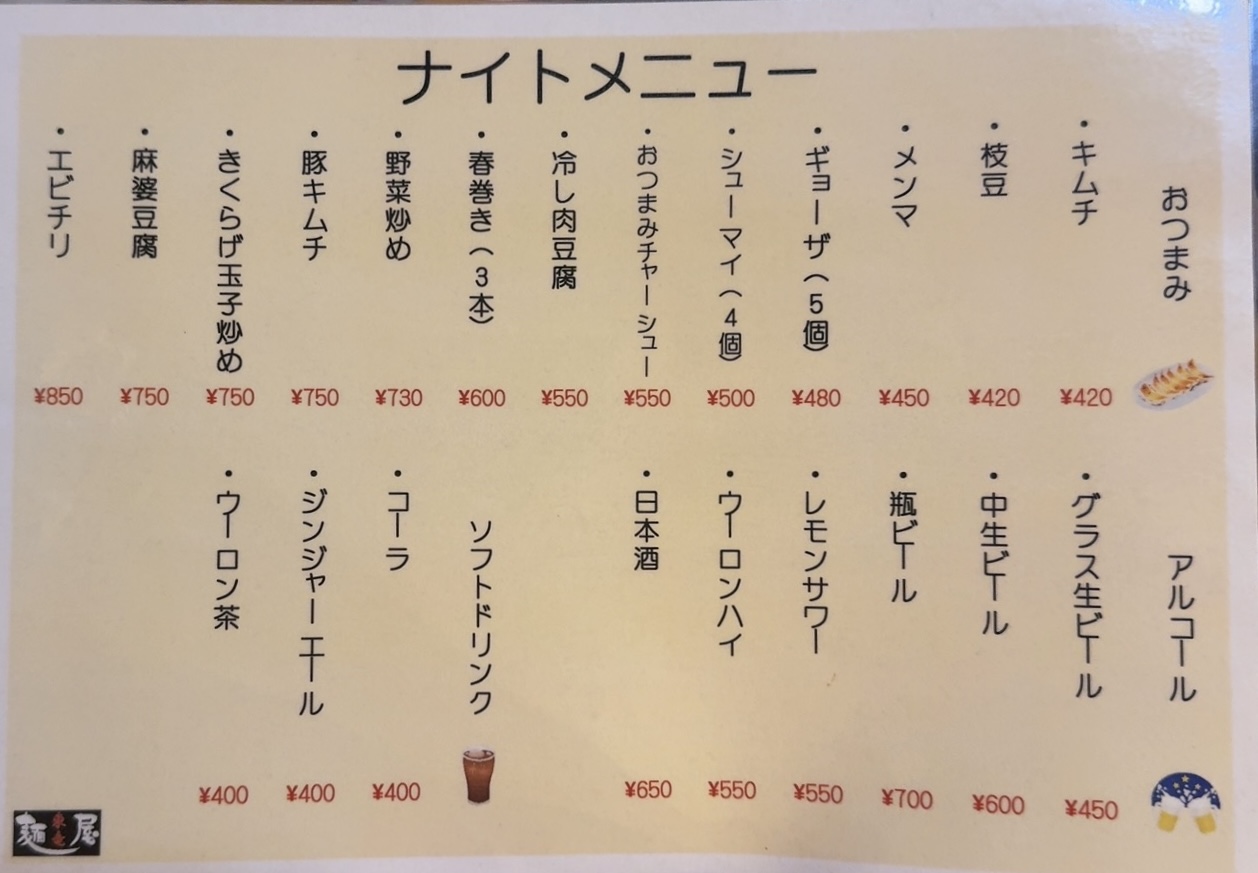 ナイトメニュー
おつまみ
・キムチ ¥420
・枝豆 ¥420
・メンマ ¥450
・ギョーザ（5個） ¥480
・シューマイ（4個） ¥500
・おつまみチャーシュー ¥550
・冷し肉豆腐 ¥550
・春巻き（3本） ¥600
・野菜炒め ¥730
・豚キムチ ¥750
・きくらげ玉子炒め ¥750
・麻婆豆腐 ¥750
・エビチリ ¥850
アルコール
・グラス生ビール ¥450
・中生ビール ¥600
・瓶ビール ¥700
・レモンサワー ¥550
・ウーロンハイ ¥550
・日本酒 ¥650
ソフトドリンク
・コーラ ¥400
・ジンジャーエール ¥400
・ウーロン茶 ¥400
麺屋